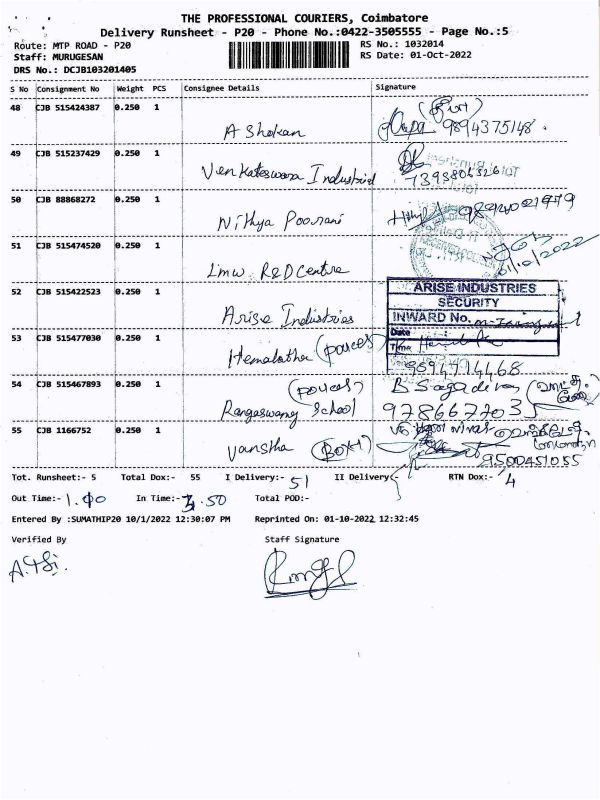 THE PROFESSIONAL COURIERS, Coimbatore
Delivery Runsheet - P20 - Phone No.:0422-3505555 - Page No.:5
Route: MTP ROAD - P20 RS No.: 1032014
Staff: MURUGESAN RS Date: 01-Oct-2022
DRS No.: DCJB103201405
S No Consignment No Weight PCS Consignee Details Signature
48 CJB 515424387 0.250 1 A Shokan 9894375148.
49 CJB 515237429 0.250 1 Venkateswara Industrial 7393804326
50 CJB 88868272 0.250 1 Nithya Poorani
51 CJB 515474520 0.250 1 Lmw R&D Centre 01/10/2022
52 CJB 515422523 0.250 1 Arise Industries
ARISE INDUSTRIES
SECURITY
INWARD No.
Date
Time
53 CJB 515477030 0.250 1 Hemalatha 9894714468
54 CJB 515467893 0.250 1 Rangaswamy School 9786677035
55 CJB 1166752 0.250 1 Vanstha (BOX) 9500451055
Tot. Runsheet:- 5 Total Dox:- 55 I Delivery:- 51 II Delivery:- RTN Dox:- 4
Out Time:- 1.00 In Time:- 7.50 Total POD:-
Entered By :SUMATHIP20 10/1/2022 12:30:07 PM Reprinted On: 01-10-2022 12:32:45
Verified By Staff Signature